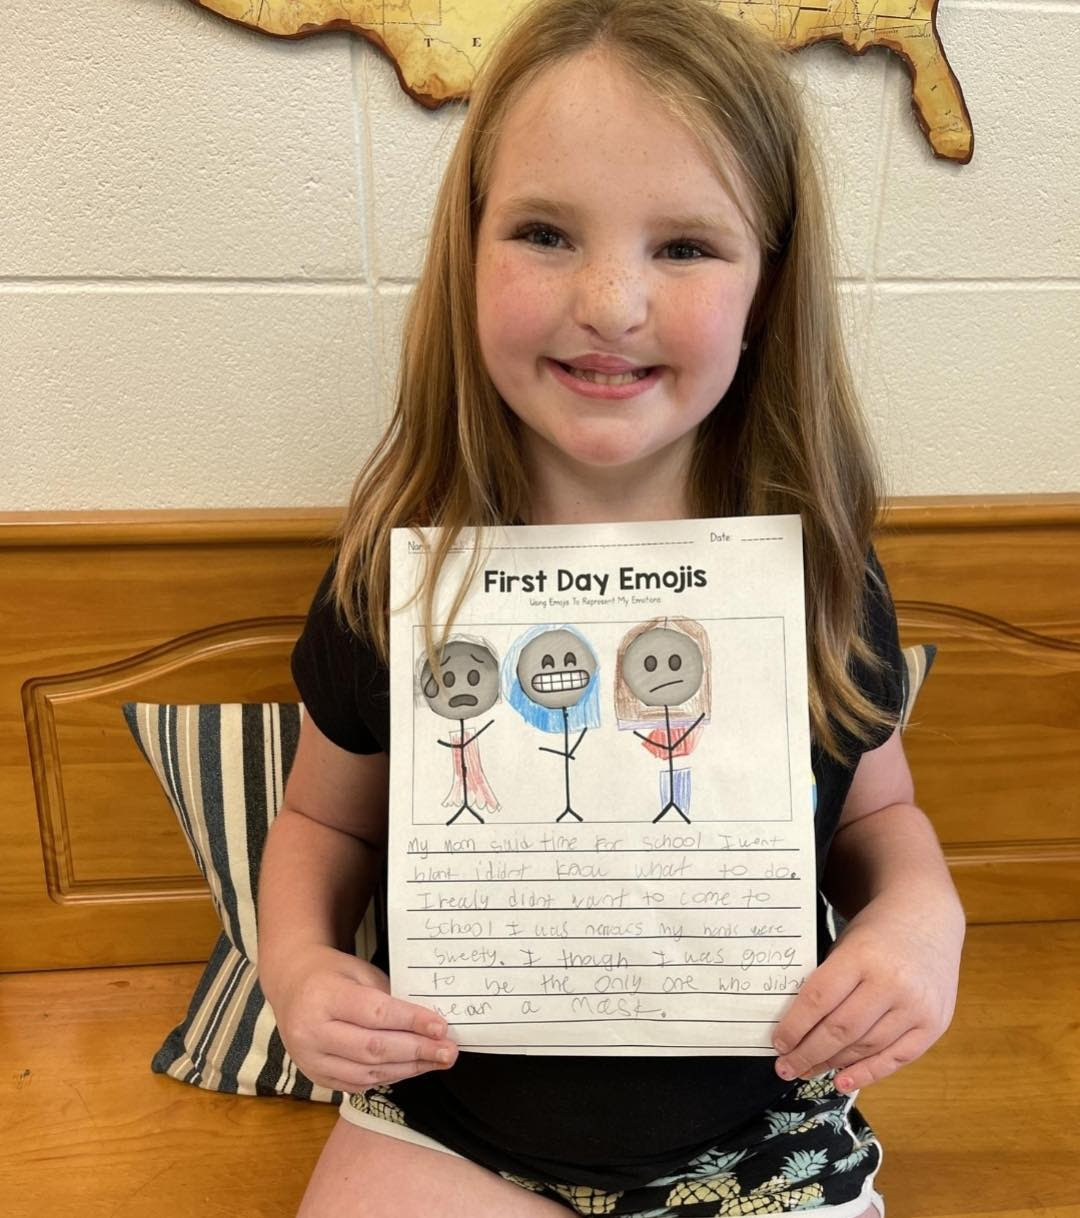 T E
Name
Date:
First Day Emojis
Using Emojis To Represent My Emotions
My mom said time for school I went
blank i didnt know what to do.
I realy didnt want to come to
School I was nervous my hands were
Sweety. I though I was going
to be the only one who didnt
wear a mask.